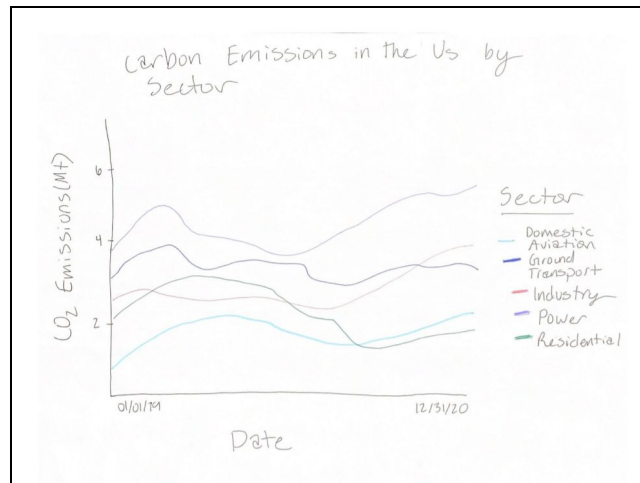 Carbon Emissions in the Us by
Sector
CO2 Emissions (Mt)
6
4
2
01/01/19
12/31/20
Date
Sector
Domestic
Aviation
Ground
Transport
Industry
Power
Residential